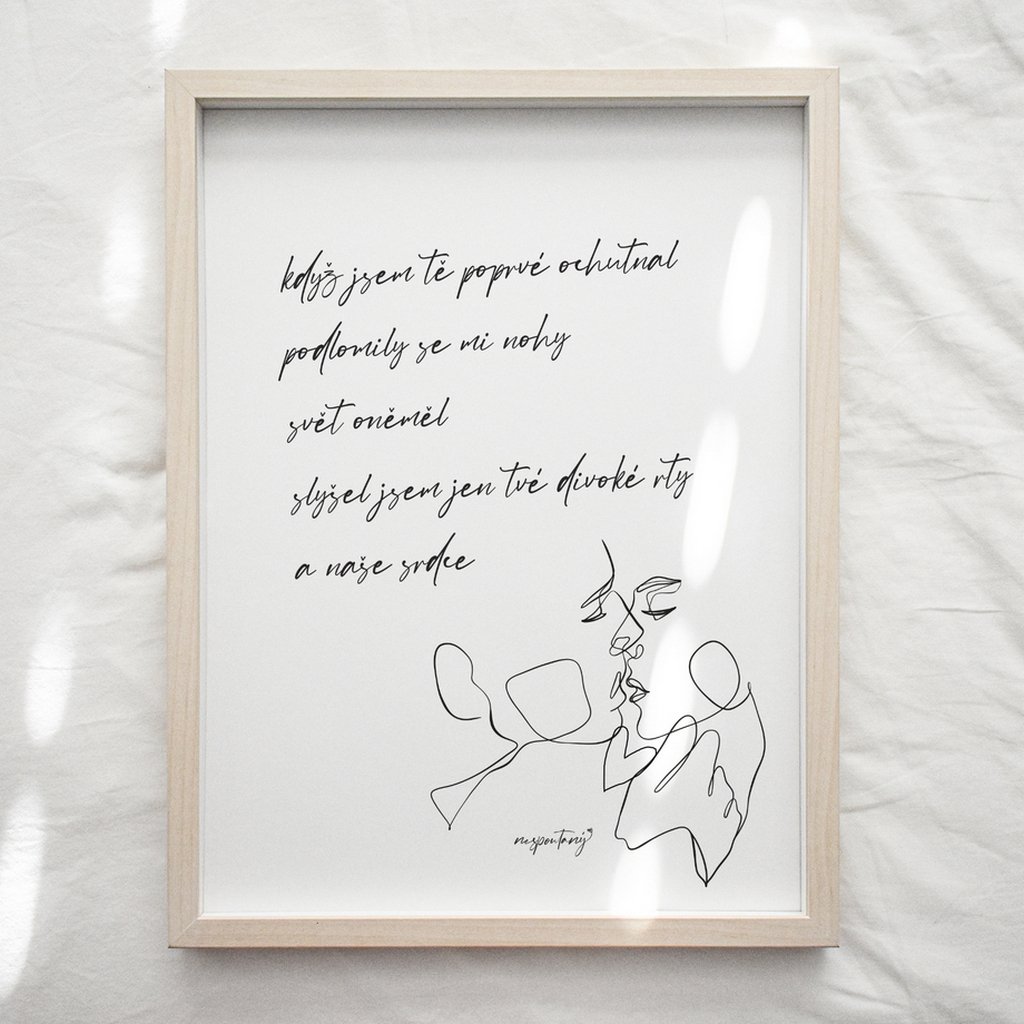 když jsem tě poprvé ochutnal
podlomily se mi nohy
svět oněměl
slyšel jsem jen tvé divoké rty
a naše srdce
nespoutaný